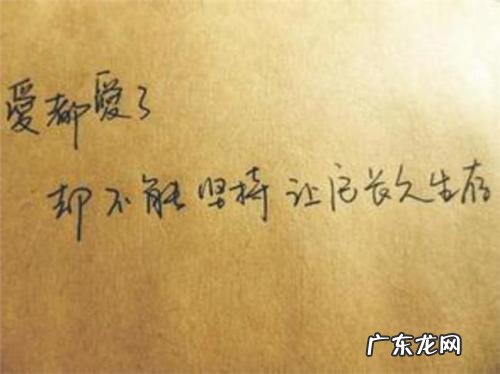 愛都愛了
却不能坚持让它长久生存
广东龙网